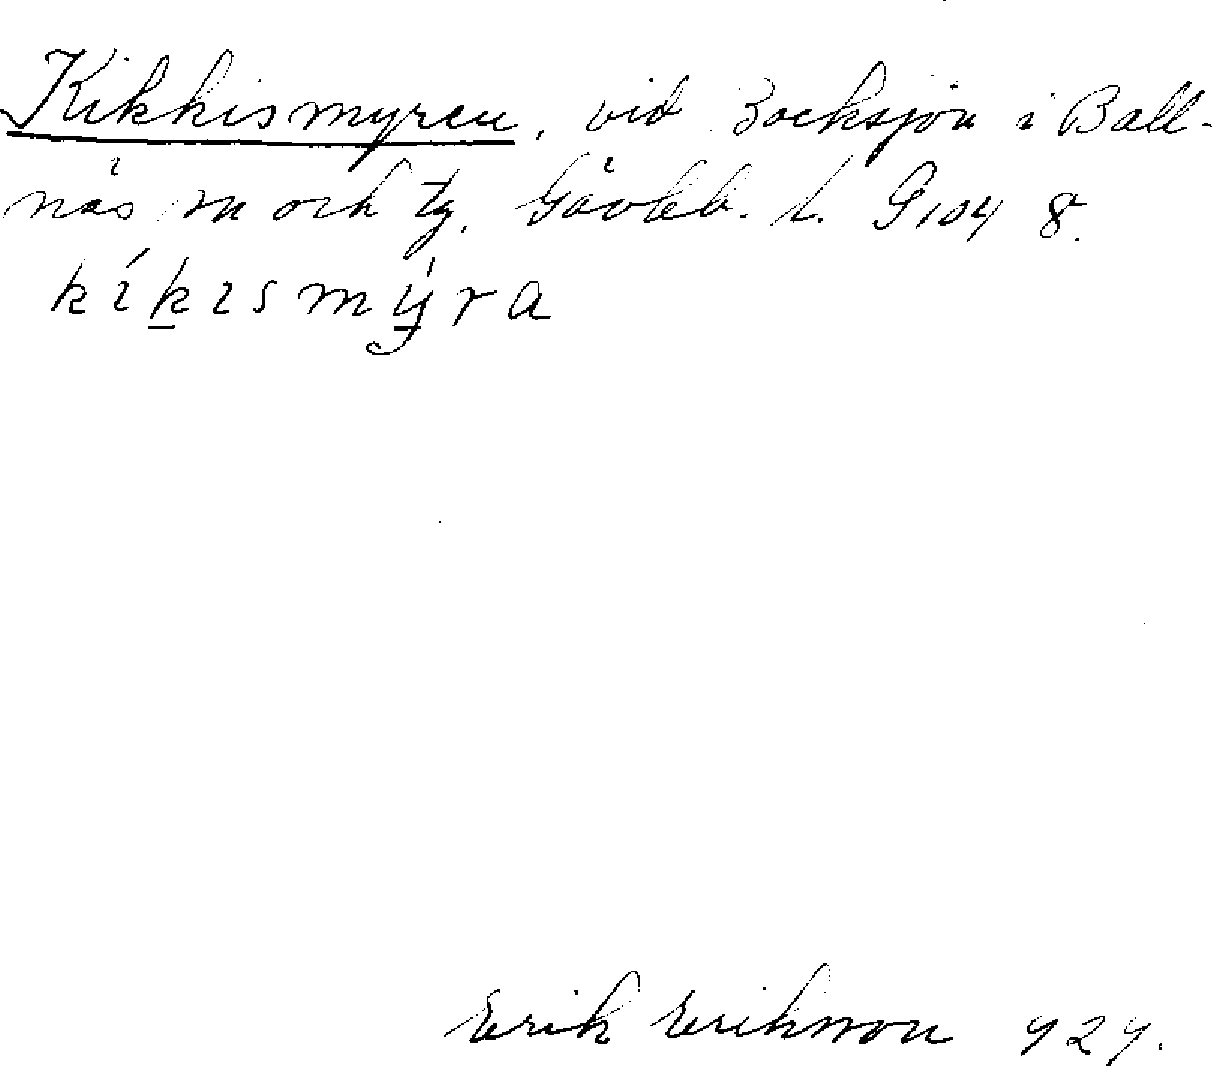 Kikkismyren, vid Bocksjön i Boll-
näs sn och tg, Gävleb. l. G104 8.
kíkismýra
Erik Erikson 929.